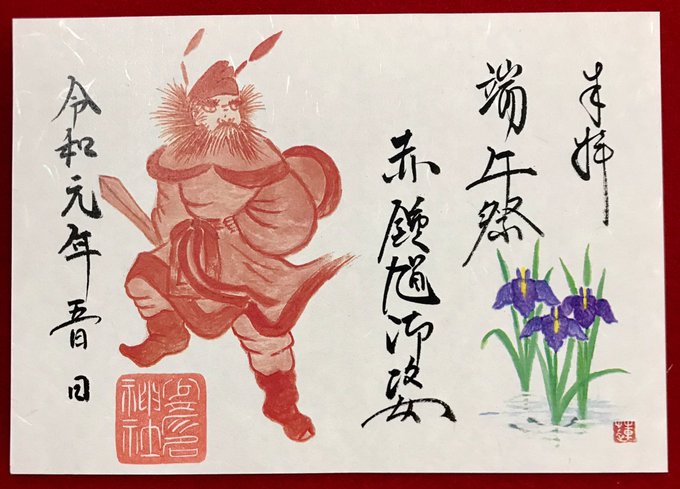 奉拝
端午祭
赤鍾馗御姿
令和元年五月 日
神社
蓮